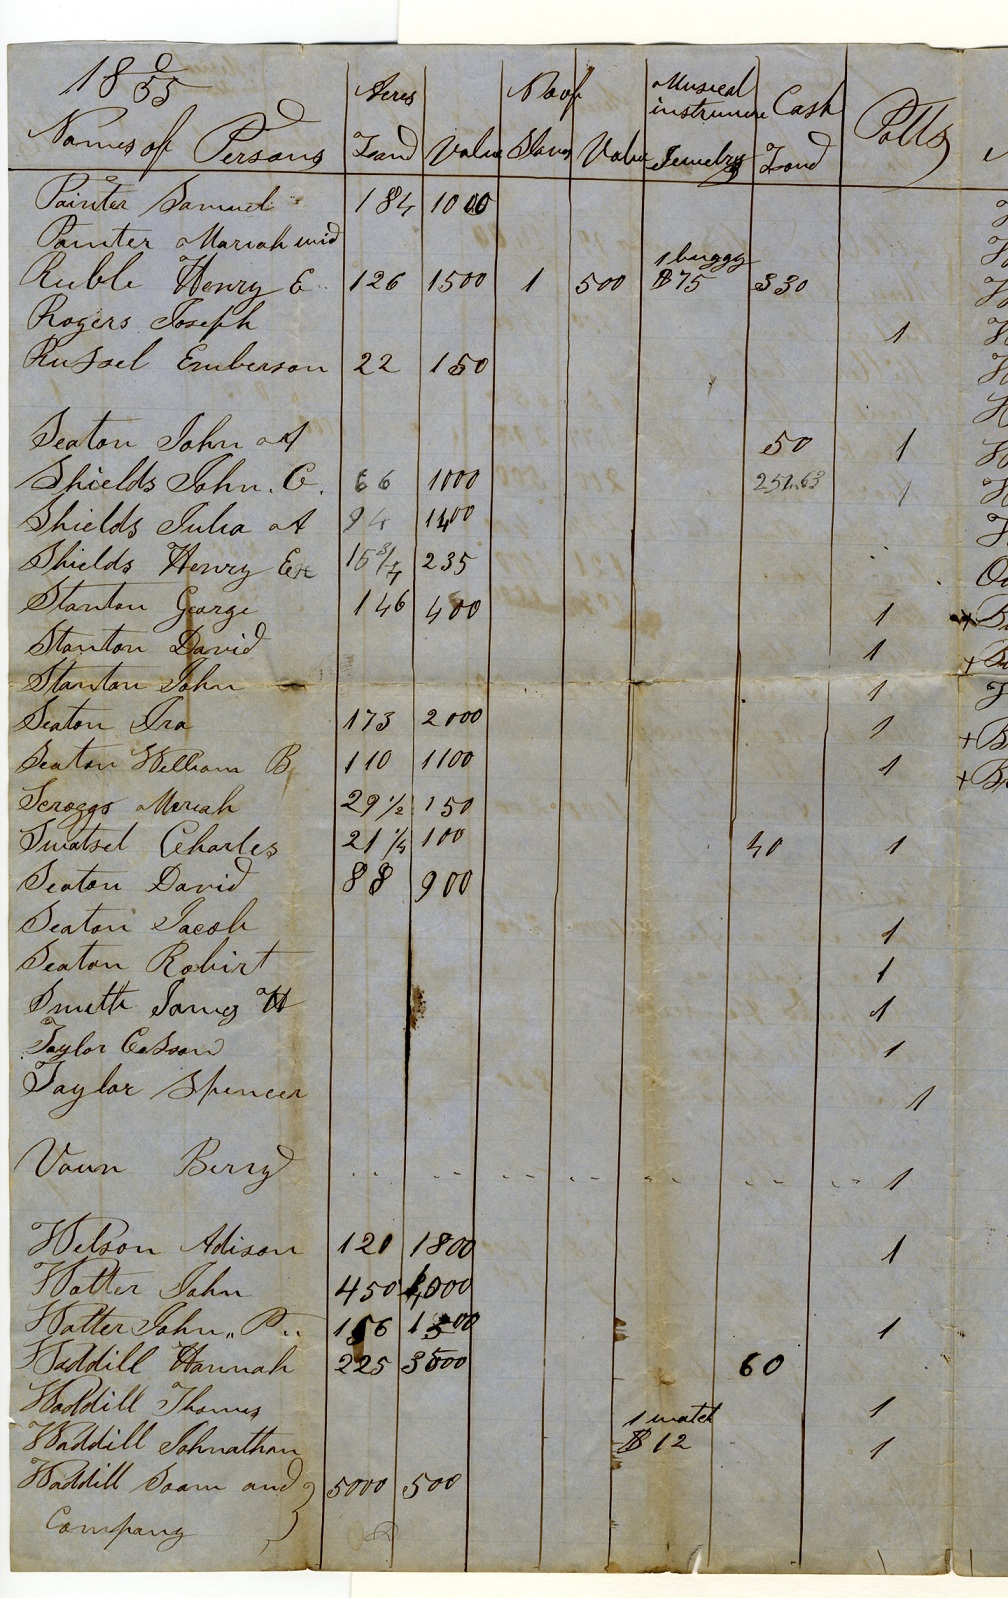 1855
Acres No of Musical
instrume Cash Polls
Names of Persons Land Value Slaves Value Jewelry Land
Painter Samuel 184 1000
Painter Mariah wid
1 buggy
Ruble Henry E 126 1500 1 500 $75 330
Rogers Joseph 1
Russel Emberson 22 150
Seaton John A 50 1
Shields John. C. 66 1000 251.63 1
Shields Julia A 94 1400
Shields Henry Ex 15 3/4 235
Stanton George 146 400 1
Stanton David 1
Stanton John 1
Seaton Ira 173 2000 1
Seaton William B 110 1100 1
Scroggs Mariah 29 1/2 150
Swatsel Charles 21 1/4 100 40 1
Seaton David 88 900
Seaton Jacob 1
Seaton Robirt 1
Smith James H 1
Taylor 1
Taylor Spencer 1
Vaun Berry 1
Welson Adison 120 1800 1
Watter John 450 4000
Watter John,, P,, 156 1500 1
Waddill Hannah 225 3500 60
Waddill Thomas 1
1 watch
Waddill Johnathan $12 1
Waddill Saam and 5000 500
Company